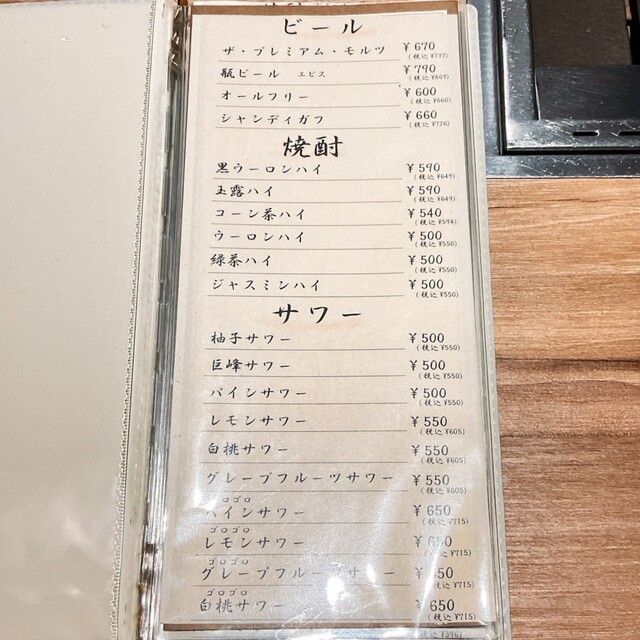 ビール
ザ・プレミアム・モルツ ¥670
(税込¥737)
瓶ビール エビス ¥790
(税込¥869)
オールフリー ¥600
(税込¥660)
シャンディガフ ¥660
(税込¥726)
焼酎
黒ウーロンハイ ¥590
(税込¥649)
玉露ハイ ¥590
(税込¥649)
コーン茶ハイ ¥540
(税込¥594)
ウーロンハイ ¥500
(税込¥550)
緑茶ハイ ¥500
(税込¥550)
ジャスミンハイ ¥500
(税込¥550)
サワー
柚子サワー ¥500
(税込¥550)
巨峰サワー ¥500
(税込¥550)
パインサワー ¥500
(税込¥550)
レモンサワー ¥550
(税込¥605)
白桃サワー ¥550
(税込¥605)
グレープフルーツサワー ¥550
(税込¥605)
ゴロゴロ
パインサワー ¥650
(税込¥715)
ゴロゴロ
レモンサワー ¥650
(税込¥715)
ゴロゴロ
グレープフルーツサワー ¥650
(税込¥715)
ゴロゴロ
白桃サワー ¥650
(税込¥715)